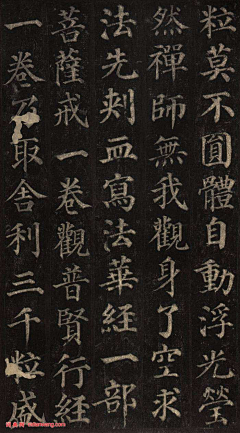 粒莫不圓體自動浮光瑩
然禪師無我觀身了空求
法先刾血寫法華經一部
菩薩戒一卷觀普賢行經
一卷乃取舍利三千粒盛